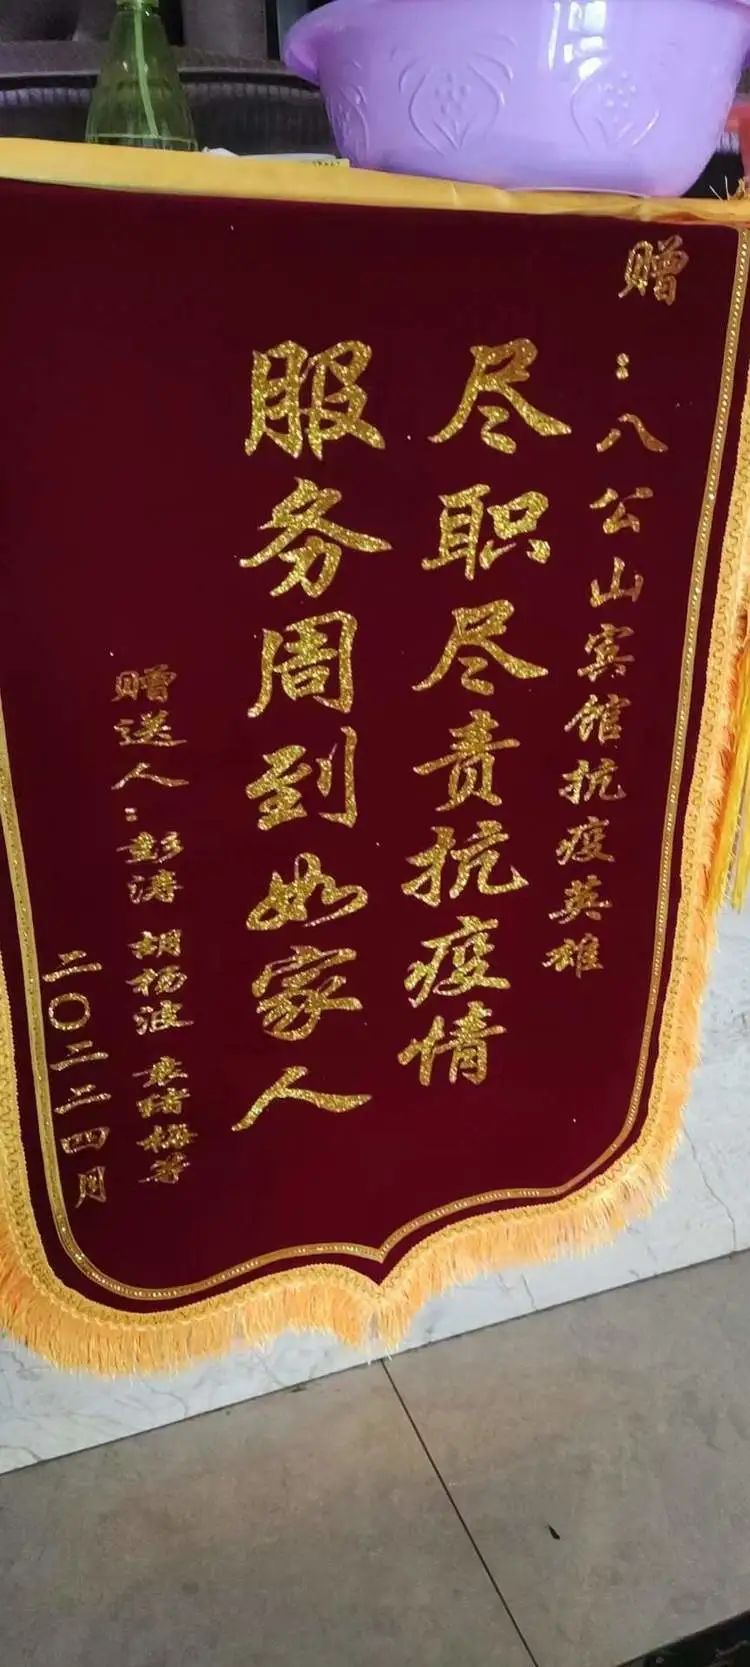 赠：八公山宾馆抗疫英雄
尽职尽责抗疫情
服务周到如家人
赠送人：彭涛 胡杨波 袁绪梅等
二〇二二四月